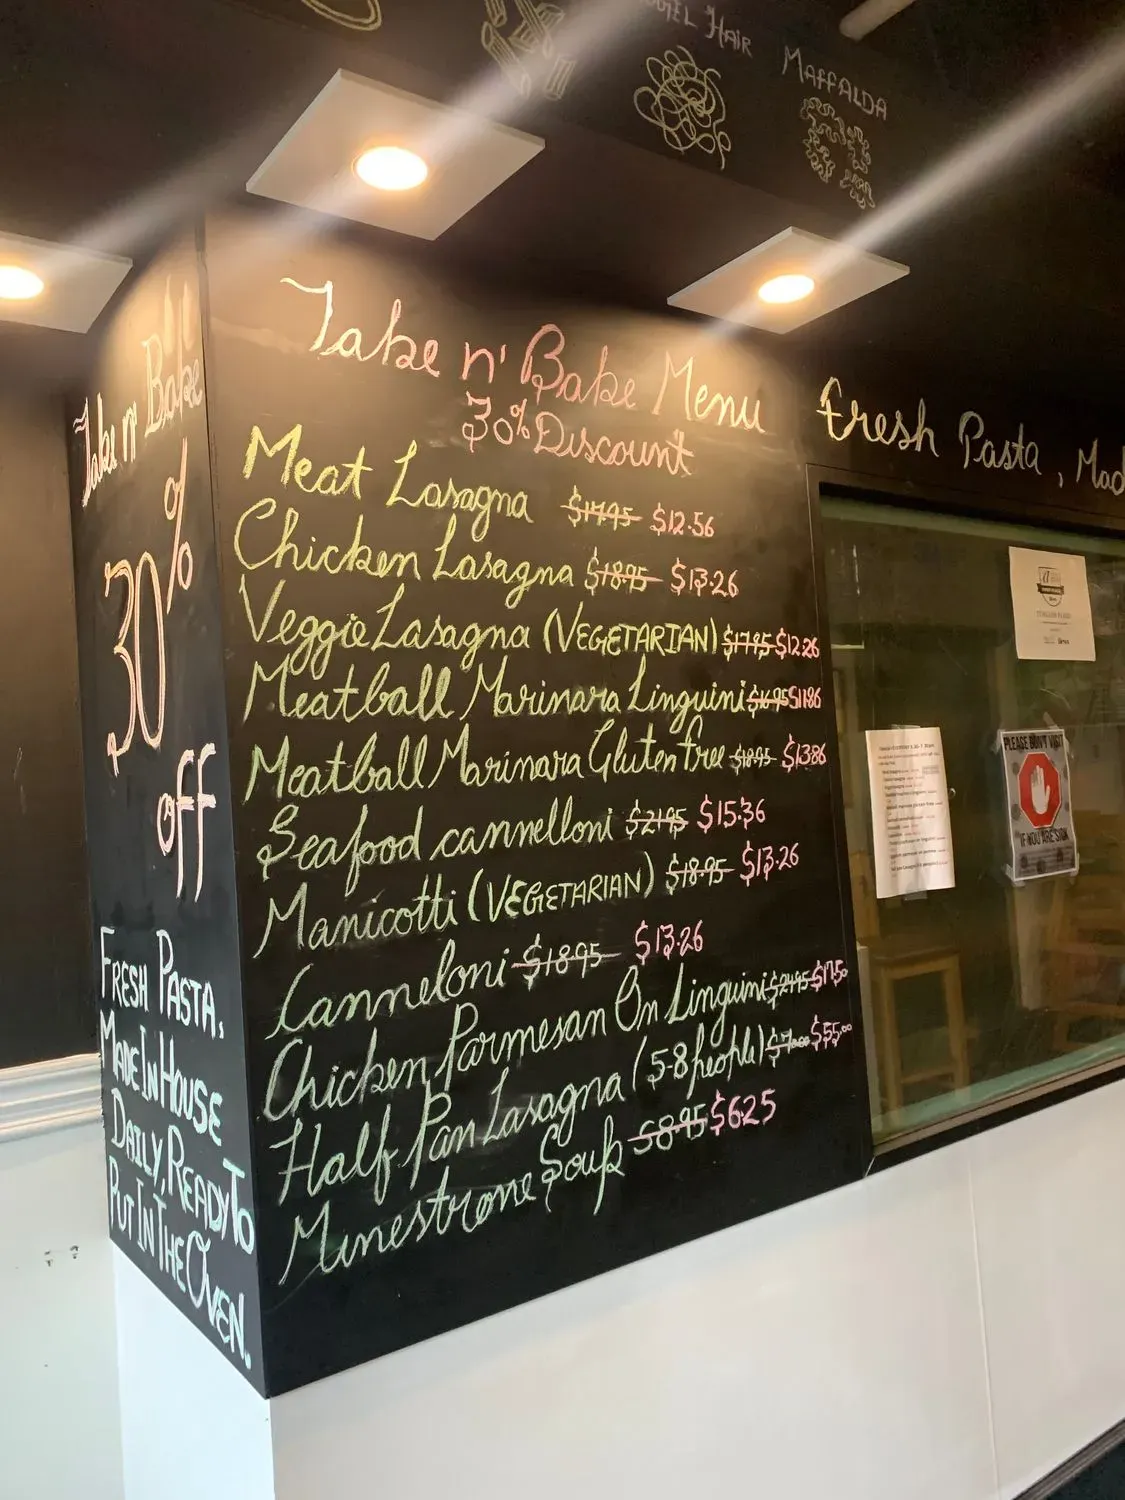 HAIR
MAFFALDA
Take n' Bake Menu
30% Discount
Meat Lasagna $17.95 $12.56
Chicken Lasagna $18.95 $13.26
Veggie Lasagna (VEGETARIAN) $17.95 $12.26
Meatball Marinara Linguini $16.95 $11.86
Meatball Marinara Gluten Free $18.95 $13.86
Seafood cannelloni $21.95 $15.36
Manicotti (VEGETARIAN) $18.95 $13.26
Canneloni $18.95 $13.26
Chicken Parmesan On Linguini $24.95 $17.50
Half Pan Lasagna (5-8 people) $55.00
Minestrone Soup $8.95 $6.25
Take n' Bake
30%
off
FRESH PASTA,
MADE IN HOUSE
DAILY, READY TO
PUT IN THE OVEN.
Fresh Pasta, Mad
PLEASE DON'T VISIT
IF YOU ARE SICK